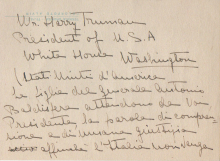 Mr. Harry Truman
President of U.S.A
White House Washington
(Stati Uniti d'America
Le figlie del Generale Antonio
Baldissera attendono da Voi
Presidente la parola di compren
sione e di umana giustizia
affinchè l'Italia non venga